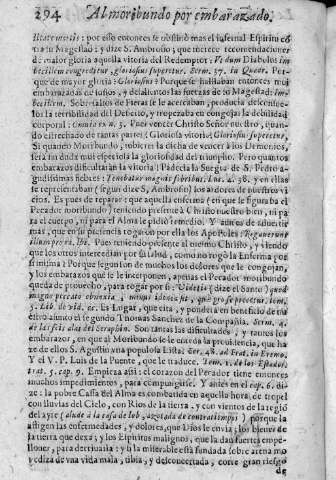 294 Al moribundo por embarazado.
por esso entonces se obstinò mas el infernal Espiritu cõ
tra su Magestad: y dize S. Ambrosio, que merece recomendaciones
de mayor gloria aquella vitoria del Redemptor: Diabolus im
becillum congreditur, gloriosius superetur. Serm. 37. Por-
que de mayor gloria? Gloriosius? Porque se hallaban entonces muy
embarazadas de sustos, y delalientos las fuerzas de su Magestad: im-
becillum. Sobresaltos de Fieras se le acercaban,
la terribilidad del Desierto, y tropezaba en congojas la debilidad
corporal: Pues vencer Christo Señor nuestro, quan-
do estrechado de tantas partes; Gloriosa vitoria: Gloriosius superetur.
Si quando Moribundo, tubieres la dicha de vencer à los Demonios,
serà sin duda muy especiosa la gloriosidad del triumpho. Pero quantos
embarazos dificultaràn la vitoria! Padecia la Suegra de S. Pedro a-
gudissimas fiebres: Tenebatur magnis febribus. Luc. 4. 38. y en ellas
se representaban (segun dize S. Ambrosio) los ardores de nuestros vi
cios. Es pues de reparar: que aquella enferma (en que se figuraba el
Pecador moribundo) teniendo presente à Christo nuestro bien, ni pa
ra el cuerpo, ni para el Alma le pidiò remedio. Y aureis de aduertir
mas, que en su presencia rogaron por ella los Apostoles: Rogauerunt
illum pro ea. Pues teniendo presente al mismo Christo, y viendo
que los otros intercedian por su salud, como no rogò la Enferma por
si misma? Porque segun son de muchos los dolores que le congojan,
y los embarazos que se le interponen, apenas el Pecador moribundo
queda de prouecho, para rogar por si: Videtis (dize el Santo) quod
magno peccato obnoxia, minus idonea sit, quæ pro se precetur.
3. Lib. de vid. Es Lugar, que cita, y pondera en beneficio de nu
estro assumpto el segundo Thomas Sanchez de la Compañia. Serm. 4.
de las seis alas del Seraphin. Son tantas las dificultades, y tantos los
embarazos, en que al Moribundo se le enreda la prouidencia, que ha
ze de ellos S. Agustin vna populosa Lista: Ser. 48. ad Frat. in Eremo.
Y el V. P. Luis de la Puente, que le traduce. Tom. 1. de los Estados.
trat. 5. cap. 9. Empieza assi: el corazon del Pecador tiene entonces
muchos impedimentos, para compungirse. Y antes en el cap. 6. di-
ze: la pobre Cassa del Alma es combatida en aquella hora, de tropel
con lluvias del Cielo, con Rios de la tierra, y con vientos de la regiõ
del ayre (alude à la casa de Iob, azotada de contratiempos) porque la
afligen las enfermedades, y dolores, que Dios le envia, los bienes de
la tierra que dexa; y los Espiritus malignos, que la dan fuertes empe-
llones, para derriuarla: y si la miserable està fundada sobre arena mo
vediza de vna vida mala, tibia, y desconcertada, corre gran riesgo
de